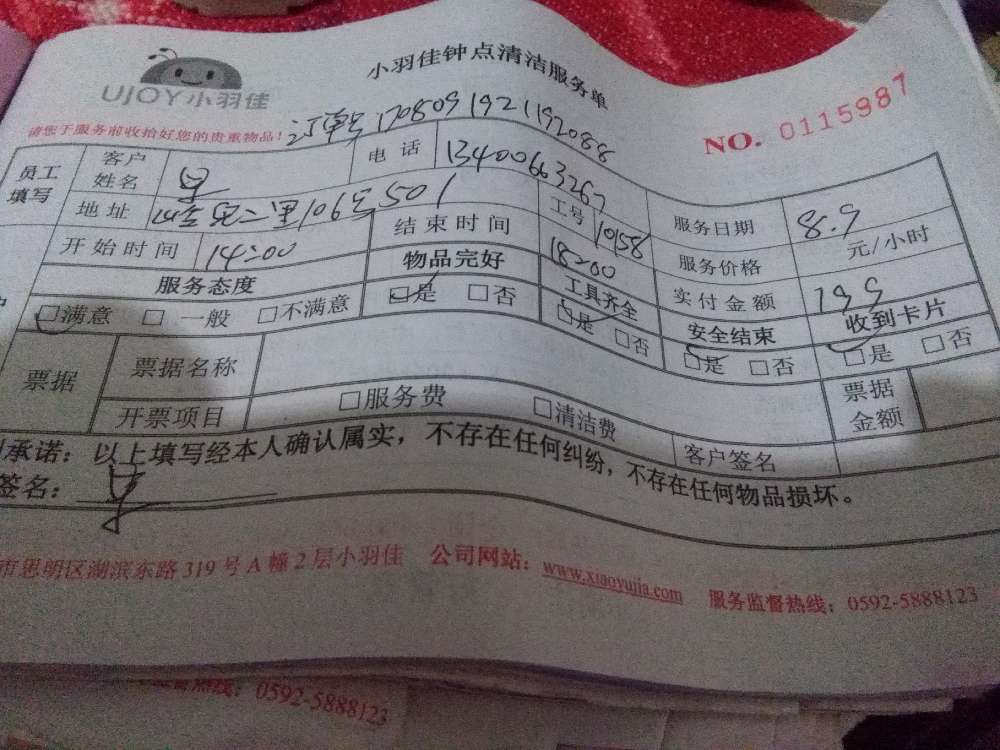 小羽佳钟点清洁服务单
UJOY小羽佳
NO. 0115987
请您于服务前收拾好您的贵重物品!
订单号 1708091921192088
员工填写 客户姓名 电话 13400663267 服务日期 8.9
地址 106号501 工号 10158 服务价格 元/小时
开始时间 14:00 结束时间 18:00 实付金额 199
服务态度 物品完好 工具齐全 安全结束 收到卡片
□满意 □一般 □不满意 □是 □否 □是 □否 □是 □否 □是 □否
票据 票据名称 票据金额
开票项目 □服务费 □清洁费 客户签名
承诺:以上填写经本人确认属实,不存在任何纠纷,不存在任何物品损坏。
签名:
市思明区湖滨东路319号A幢2层小羽佳 公司网站:www.xiaoyujia.com 服务监督热线:0592-5888123
热线:0592-5888123